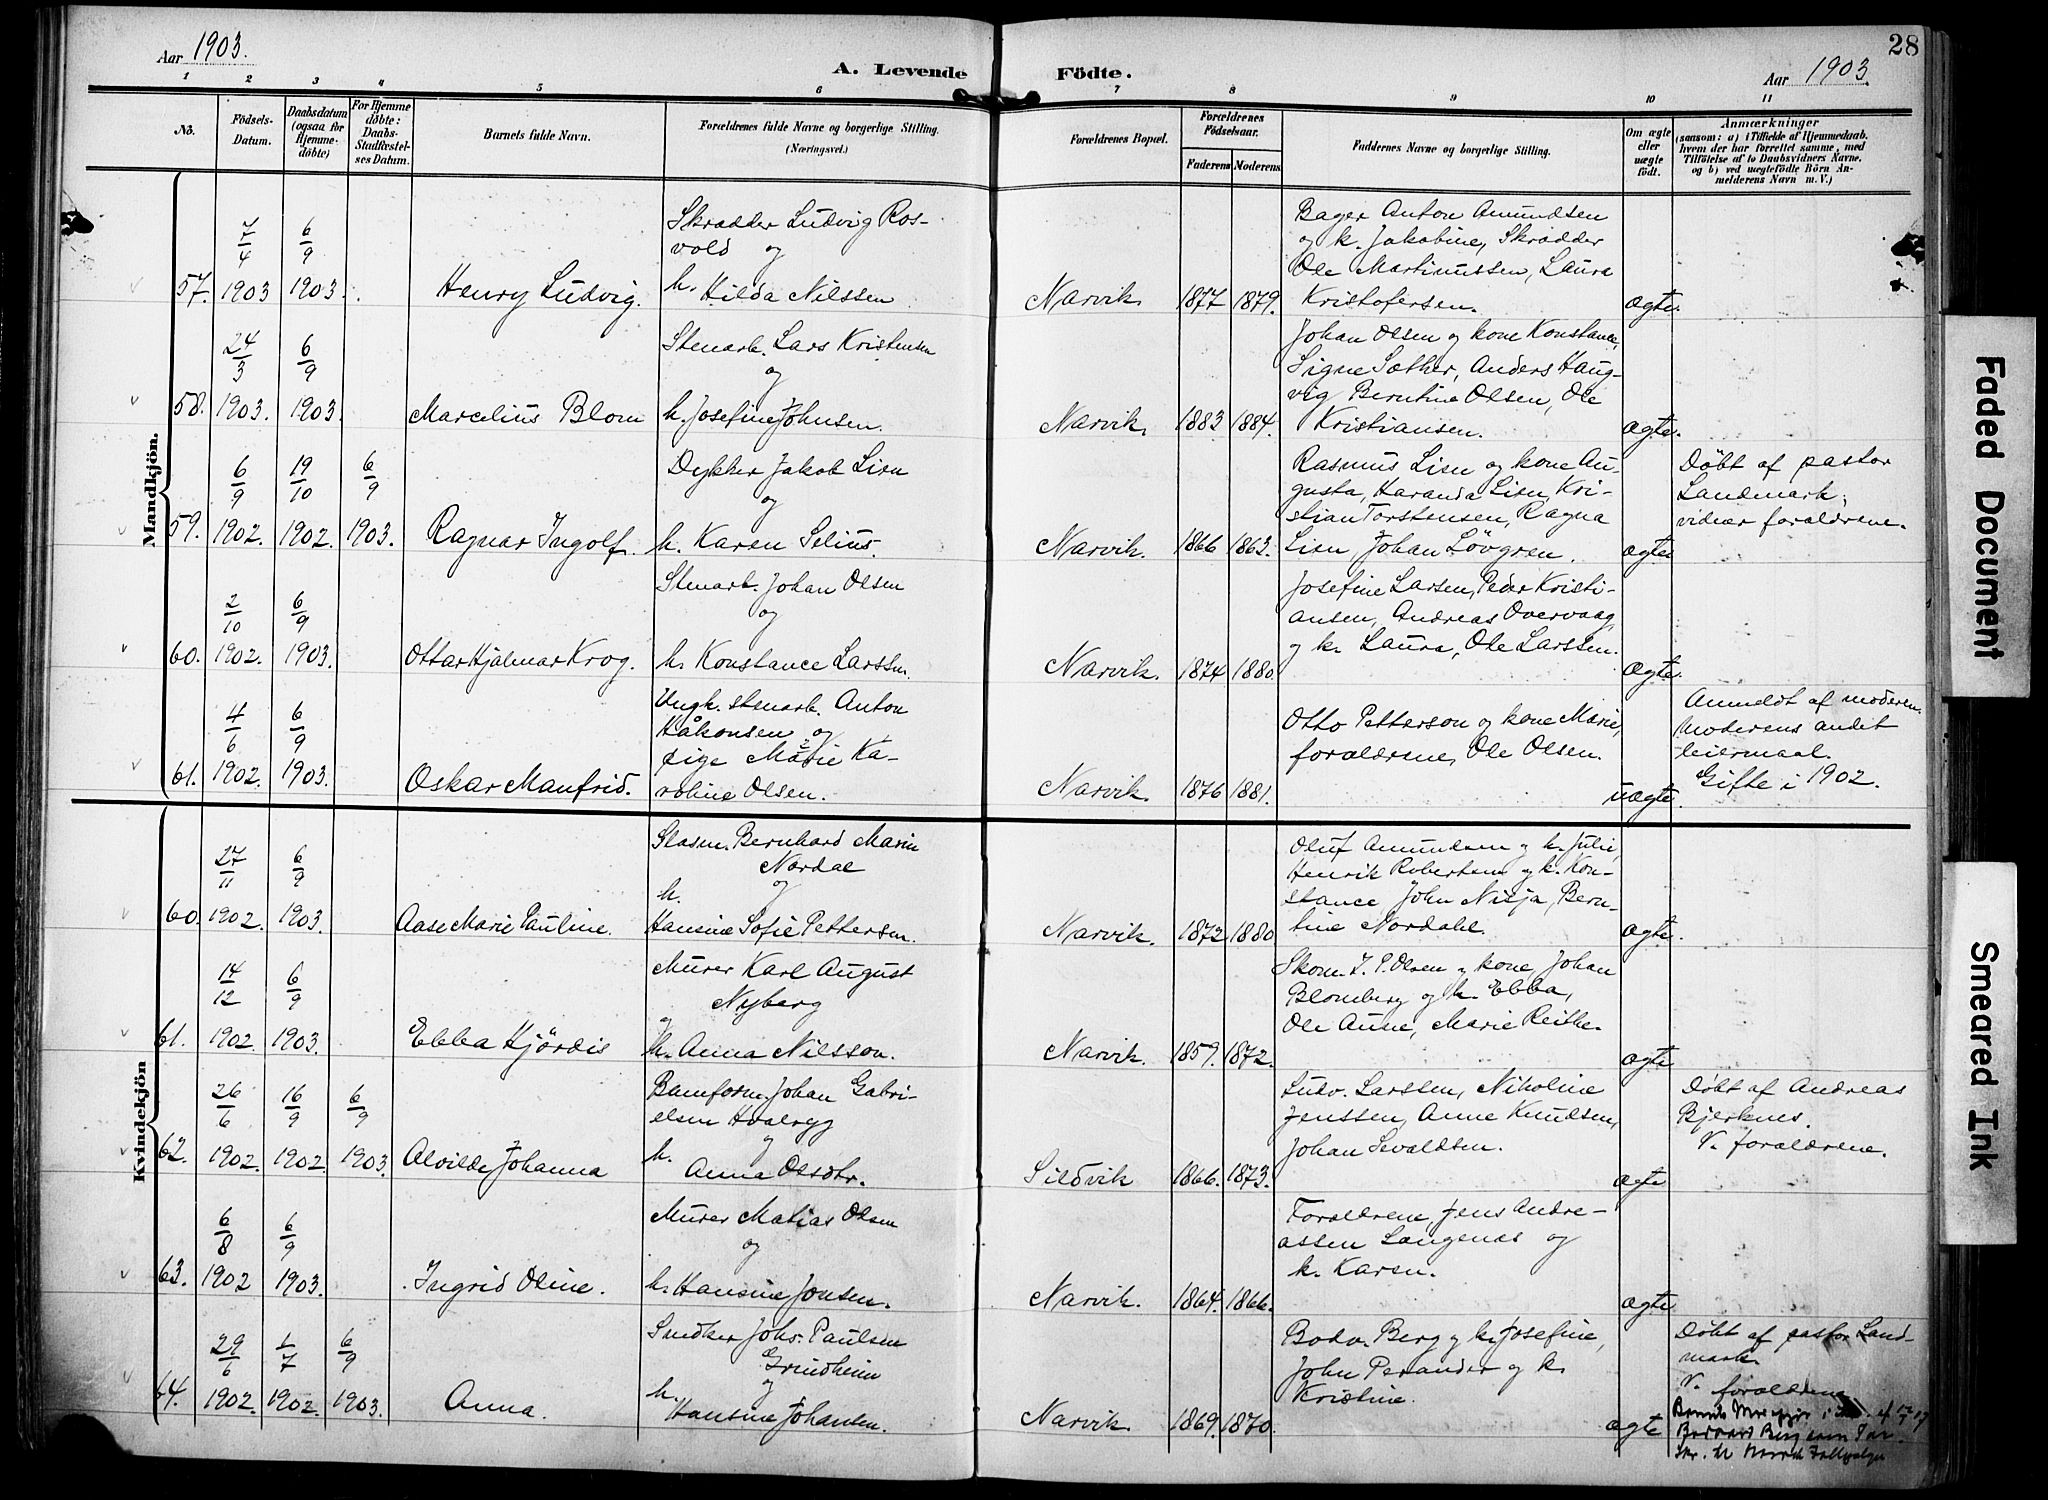 Aar 1903.
A. Levende Födte.
Aar 1903
28
1 2 3 4 5 6 7 8 9 10 11
No.
Födsels-
Datum.
Daabsdatum
(ogsaa for
Hjemme-
döbte)
For Hjemme
döbte:
Daabs-
Stadfæstel-
ses Datum.
Barnets fulde Navn.
Forældrenes fulde Navne og borgerlige Stilling.
(Næringsvei.)
Forældrenes Bopæl.
Forældrenes
Födselsaar.
Faderens Moderens
Faddernes Navne og borgerlige Stilling.
Om ægte
eller
uægte
födt.
Anmærkninger
(saasom: a) i Tilfælde af Hjemmedaab,
hvem der har forrettet samme, med
Tilföielse af to Daabsvidners Navne,
og b) ved uægtefödte Börn An-
melderens Navn m. V.)
Mandkjön.
57. 7/4 1903 6/9 1903.
Henry Ludvig.
Skrædder Ludvig Ros-
vold og
h. Hilda Nilssen
Narvik. 1877 1879.
Bager Anton Amundsen
og k. Jakobine, Skrædder
Ole Martinussen, Laura
Kristofersen.
ægte.
58. 24/3 1903. 6/9 1903.
Marcelius Blom
Stenarb. Lars Kristensen
og
h. Josefine Johnsen.
Narvik. 1883 1884.
Johan Olsen og kone Konstance,
Signe Sæther, Anders Haug-
vig Berntine Olsen, Ole
Kristiansen.
ægte.
59. 6/9 1902. 19/10 1902. 6/9 1903.
Ragnar Ingolf.
Dykker Jakob Lien
og
h. Karen Selius.
Narvik. 1866 1863.
Rasmus Lien og kone Au-
gusta, Haranda Lien, Kri-
stian Torstensen, Ragna
Lien, Johan Lövgren.
ægte
Döbt af pastor
Landmark;
vidner forældrene.
60. 2/10 1902. 6/9 1903.
Ottar Hjalmar Krog.
Stenarb. Johan Olsen
og
h. Konstance Larssen.
Narvik. 1874 1880.
Josefine Larsen, Peder Kristi-
ansen, Andreas Overvaag
og k. Laura, Ole Larssen.
ægte.
61. 4/6 1902. 6/9 1903.
Oskar Manfrid.
Ungk. stenarb. Anton
Håkonsen og
pige Marie Ka-
roline Olsen.
Narvik. 1876 1881.
Otto Petterson og kone Marie,
forældrene, Ole Olsen.
uægte.
Anmeldt af moderen.
Moderens andet
leiermaal.
Gifte i 1902.
Kvindekjön
60. 27/11 1902. 6/9 1903.
Aase Marie Pauline.
Bernhard Marin
Nordal
og
h.
Hansine Sofie Pettersen.
Narvik. 1872 1880
Oluf Amundsen og k. Julie,
Henrik Robertsen og k. Kon-
stance John Nisja, Bern-
tine Nordahl.
ægte.
61. 14/12 1902. 6/9 1903.
Ebba Hjördis
Murer Karl August
Nyberg
og
h. Anna Nilsson.
Narvik. 1859. 1872.
Skom. I. P. Olsen og kone, Johan
Blomberg og k. Ebba,
Ole Aune, Marie Reithe.
ægte
62. 26/6 1902. 16/9 1902 6/9 1903.
Alvilde Johanna
Banform. Johan Gabri-
elsen
og
h.
Anna
Sildvik 1866. 1873.
Ludv. Larssen, Nikoline
Jenssen, Anne Knudsen,
Johan Sevaldsen.
ægte
Döbt af Andreas
Bjerknes.
V. forældrene.
63. 6/8 1902 6/9 1903.
Ingrid Oline.
Murer Matias Olsen
og
h. Hansine Jonsen.
Narvik. 1864. 1866.
Forældrene, Jens Andre-
assen Langenes og
k. Karen.
ægte
64. 29/6 1902. 1/7 1902. 6/9 1903.
Anna.
Snedker Johs. Paulsen
Grindheim
og
h.
Hansine Johansen.
Narvik. 1869. 1870.
Bodv. Berg og k. Josefine,
John Perander og k.
Kristine.
ægte
Döbt af pastor Land-
mark.
V. forældrene
Faded Document
Smeared Ink